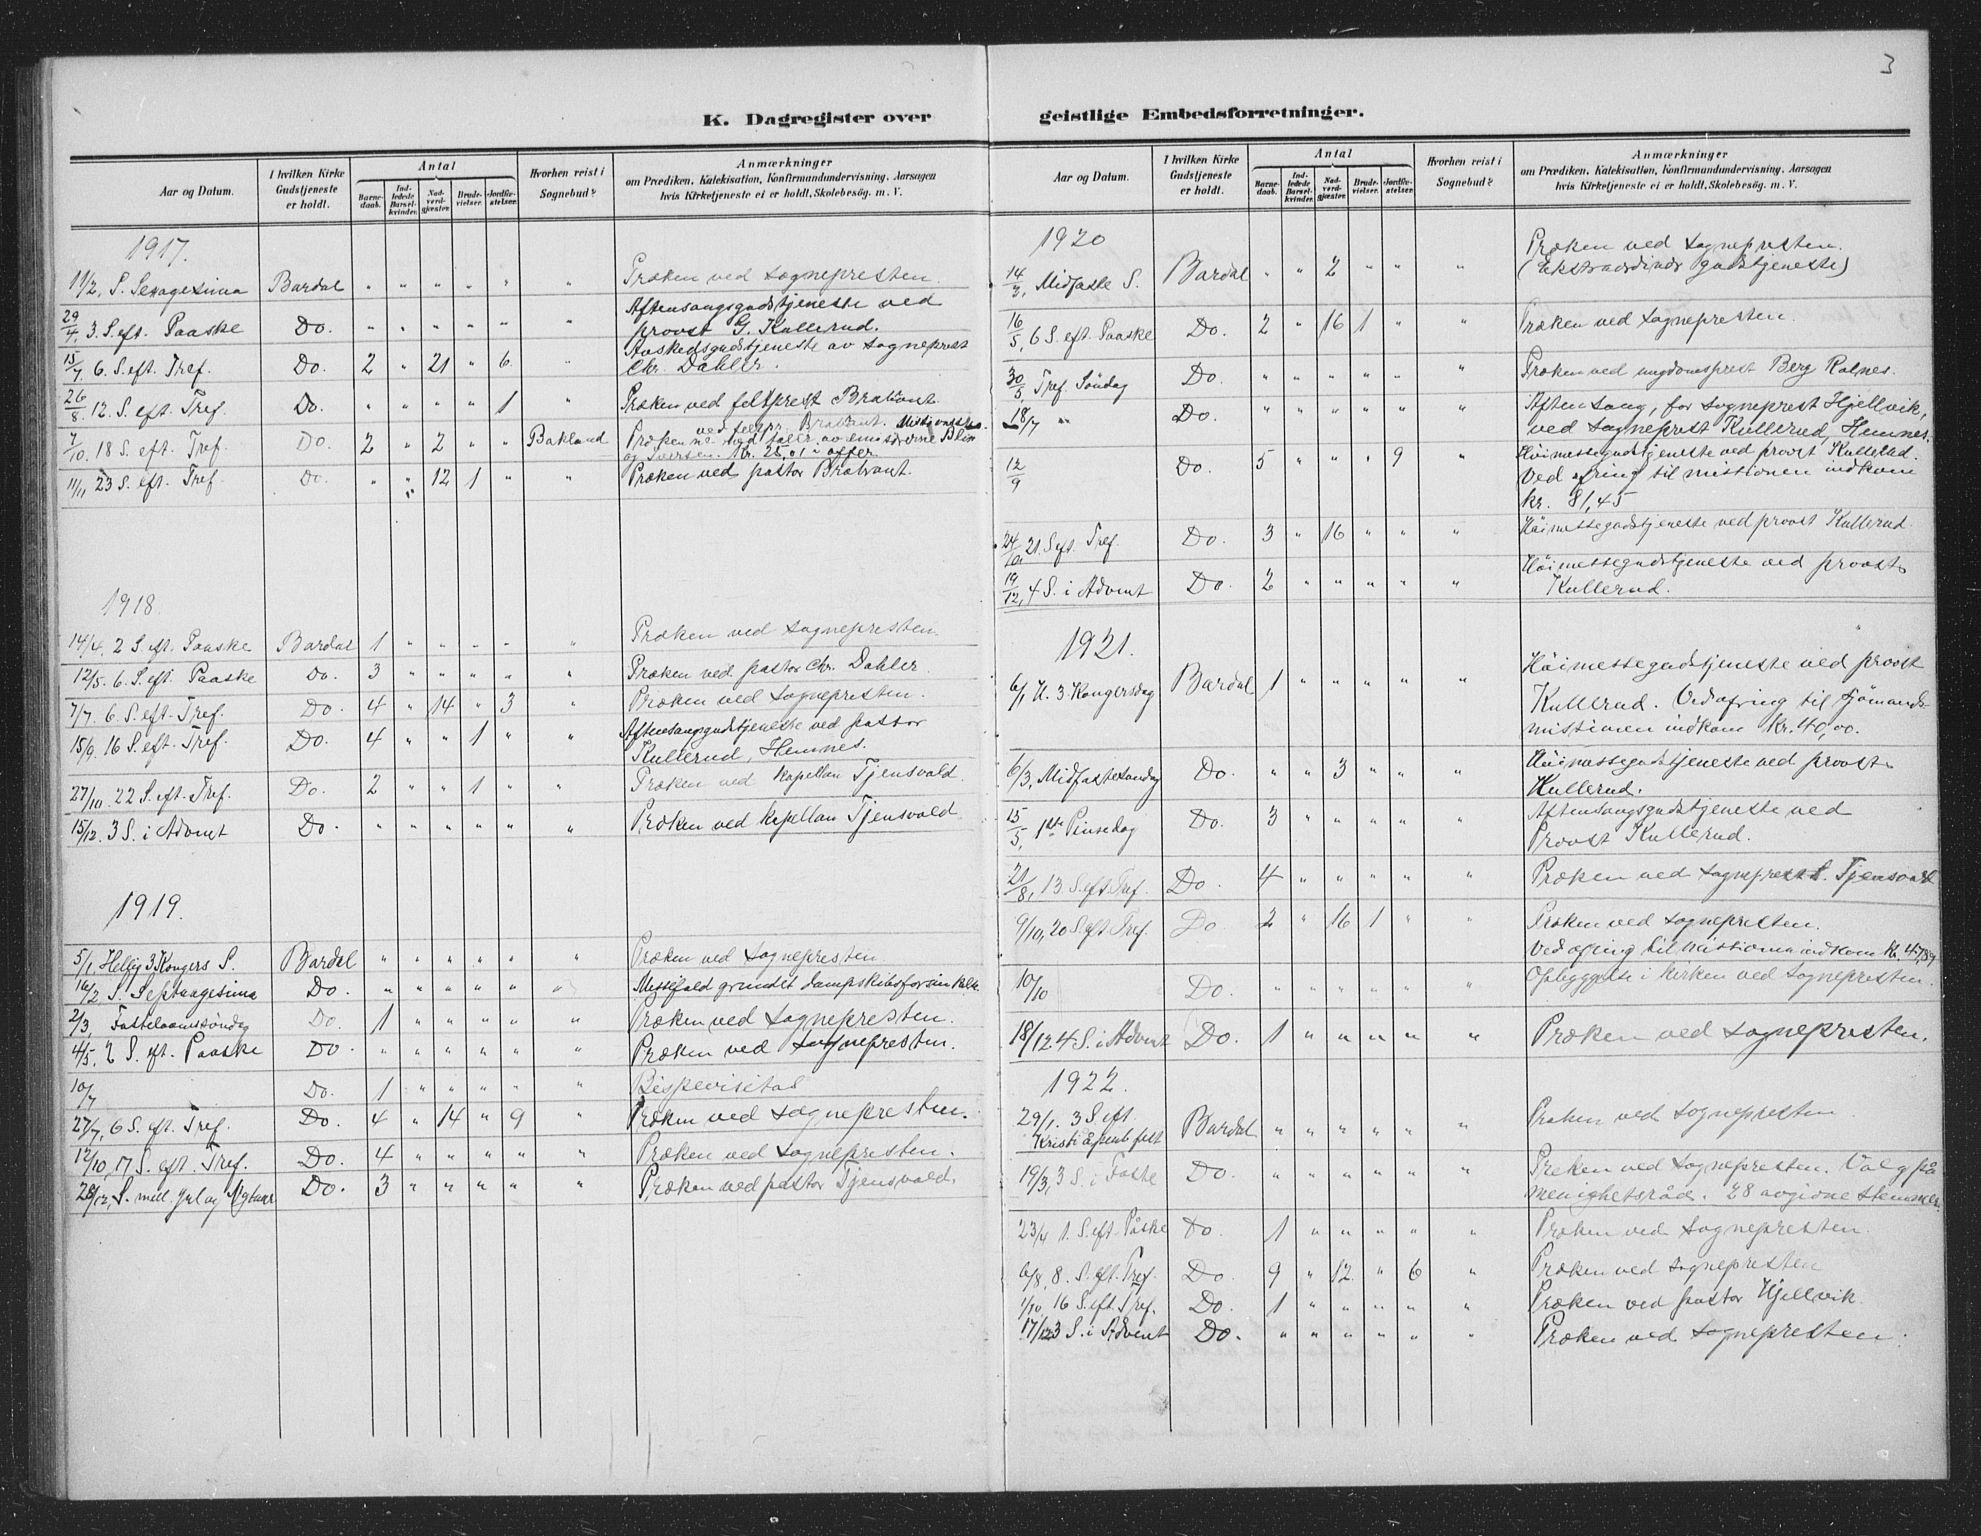 3
K. Dagregister over
Aar og Datum.
I hvilken Kirke Gudstjeneste er holdt.
Antal
Barnedaab.
Indledede Barselkvinder.
Nadverdgjæster.
Brudevielser.
Jordfæstelser.
Hvorhen reist i Sognebud?
Anmærkninger
om Prædiken, Katekisation, Konfirmandundervisning, Aarsagen
hvis Kirketjeneste ei er holdt, Skolebesög, m. V.
1917.
11/2, S. Sexagesima Bardal " " " " " " Præken ved sognepresten.
29/4, 3. S. eft. Paaske Do. " " " " " " Aftensangsgudstjeneste ved
provst G. Kullerud.
15/7, 6. S. eft. Tref. Do. 2 " 21 " 6 " Avskedsgudstjeneste av sogneprest
Chr. Dahler.
26/8, 12. S. eft. Tref. Do. " " " " 1 " Præken ved feltprest Brabrant.
7/10. 18 S. eft. Tref. Do. 2 " 2 " " Bakland
og Iversen. Kr. 25,01 i offer
11/11, 23 S. eft. Tref. Do. " " 12 1 " " Præken ved pastor Brabrant.
1918.
14/4, 2 S. eft. Paaske Bardal 1 " " " " " Præken ved sognepresten.
12/5. 6. S. eft. Paaske Do. 3 " " " " " Præken ved pastor Chr. Dahler.
7/7. 6. S. eft. Tref. Do. 4 " 14 " 3 " Præken ved sognepresten.
15/9. 16 S. eft. Tref. Do. 4 " " 1 " " Aftensangsgudstjeneste ved pastor
Kullerud, Hemnes.
27/10. 22 S. eft. Tref. Do. 2 " " 1 " " Præken ved kapellan Tjensvold.
15/12. 3 S. i Advent Do. " " " " " " Præken ved kapellan Tjensvold.
1919.
5/1, Hellig 3 Kongers S. Bardal " " " " " " Præken ved sognepresten.
16/2 S. Septuagesima Do. " " " " " " Messefald grundet dampskibsforsinkelse.
2/3, Fastelavnssöndag Do. 1 " " " " " Præken ved sognepresten.
4/5. 2 S. eft. Paaske Do " " " " " " Præken ved sognepresten.
10/7 Do. 1 " " " " " Bispevisitas
27/7, 6 S. eft. Tref. Do. 4 " 14 " 9 " Præken ved sognepresten.
12/10, 17 S. eft. Tref. Do. 4 " " " " " Præken ved sognepresten.
28/12, S. mell. Jul og Nytaar Do. 3 " " " " " Præken ved pastor Tjensvold.
geistlige Embedsforretninger.
Aar og Datum.
I hvilken Kirke Gudstjeneste er holdt.
Antal
Barnedaab.
Indledede Barselkvinder.
Nadverdgjæster.
Brudevielser.
Jordfæstelser.
Hvorhen reist i Sognebud?
Anmærkninger
om Prædiken, Katekisation, Konfirmandundervisning, Aarsagen
hvis Kirketjeneste ei er holdt, Skolebesög, m. V.
1920
14/3, Midfaste S. Bardal " " 2 " " " Præken ved sognepresten.
(Ekstraordinær gudstjeneste)
16/5, 6 S. eft. Paaske Do. 2 " 16 1 " " Præken ved sognepresten.
30/5 Tref. Söndag Do. " " " " " " Præken ved ungdomsprest Berg Rolnes.
18/7 " Do. " " " " " " Aftensang, for sogneprest Hjellvik,
ved sogneprest Kullerud, Hemnes.
12/9 Do. 5 " " " 9 " Höimessegudstjeneste ved provst Kullerud.
Ved ofring til missionen indkom
kr. 81,45
24/10 21. S. eft. Tref. Do. 3 " 16 " " " Höimessegudstjeneste ved provst Kullerud.
19/12, 4 S. i Advent Do. 2 " " " " " Höimessegudstjeneste ved provst
Kullerud.
1921.
6/1, H. 3 Kongersdag Bardal 1 " " " " " Höimessegudstjeneste ved provst
Kullerud. Ved ofring til sjömands-
missionen indkom Kr. 40,00.
6/3, Midfastesöndag Do. " " 3 " " " Höimessegudstjeneste ved provst
Kullerud.
15/5, 1ste Pinsedag Do. 3 " " " " " Aftensangsgudstjeneste ved
Provst Kullerud.
21/8, 13 S. eft. Tref. Do. 4 " " " " " Præken ved sogneprest S. Tjensvold
9/10, 20 S. eft. Tref. Do 2 " 16 1 " " Præken ved sognepresten.
Ved ofring til missionen indkom Kr. 47,89
10/10 Do. " " " " " " Opbyggelse i kirken ved sognepresten.
18/12 4 S. i Advent Do. 1 " " " " " Præken ved sognepresten.
1922.
29/1. 3 S. eft.
Kristi åpenb. fest Bardal " " " " " " Præken ved sognepresten
19/3, 3 S. i Faste Do. " " " " " " Preken ved sognepresten. Valg på
menighetsråd. 28 avgivne stemmer.
23/4 1. S. eft. Påske Do. 1 " " " " " Præken ved sognepresten.
6/8, 8. S. eft. Tref. Do. 9 " 12 " 6 " Præken ved sognepresten
1/10, 16 S. eft. Tref. Do. 1 " " " " " Præken ved pastor Hjellvik
17/12 3 S. i Advent Do. " " " " " " Præken ved sognepresten.